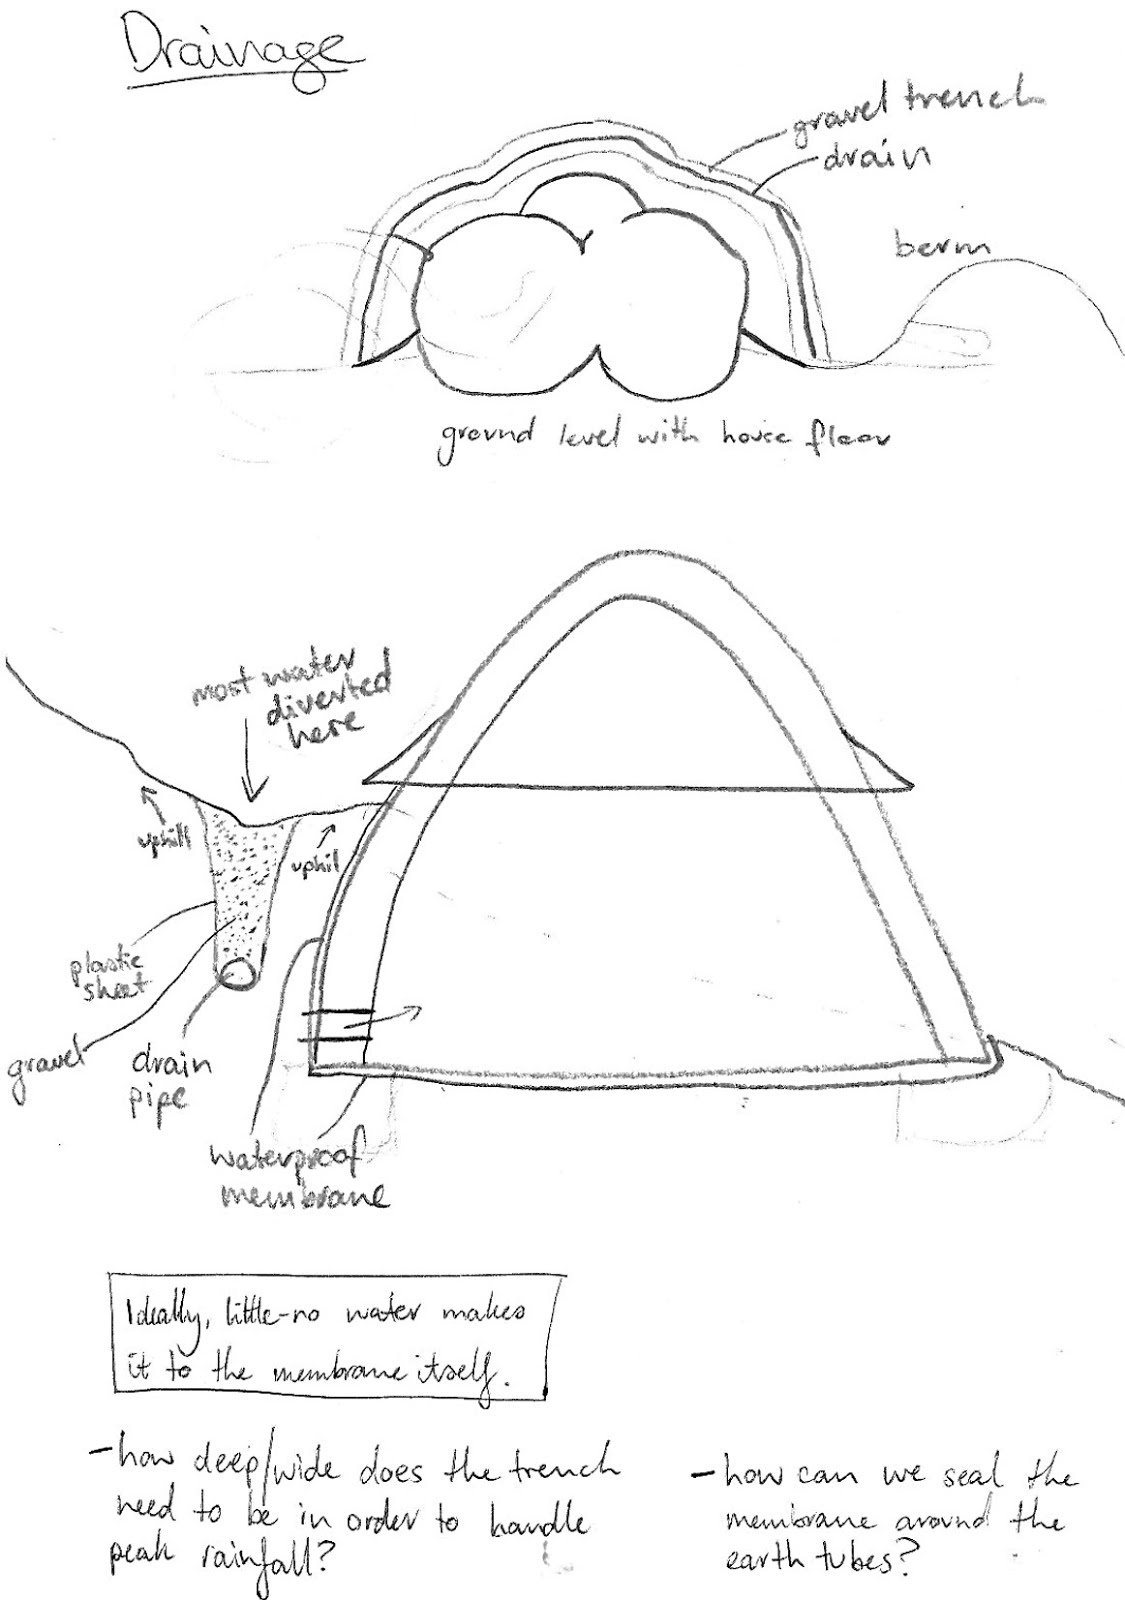 Drainage
gravel trench
drain
berm
ground level with house floor
most water
diverted
here
uphill
uphil
plastic
sheet
gravel
drain
pipe
waterproof
membrane
Ideally, little-no water makes
it to the membrane itself.
-how deep/wide does the trench
need to be in order to handle
peak rainfall?
-how can we seal the
membrane around the
earth tubes?